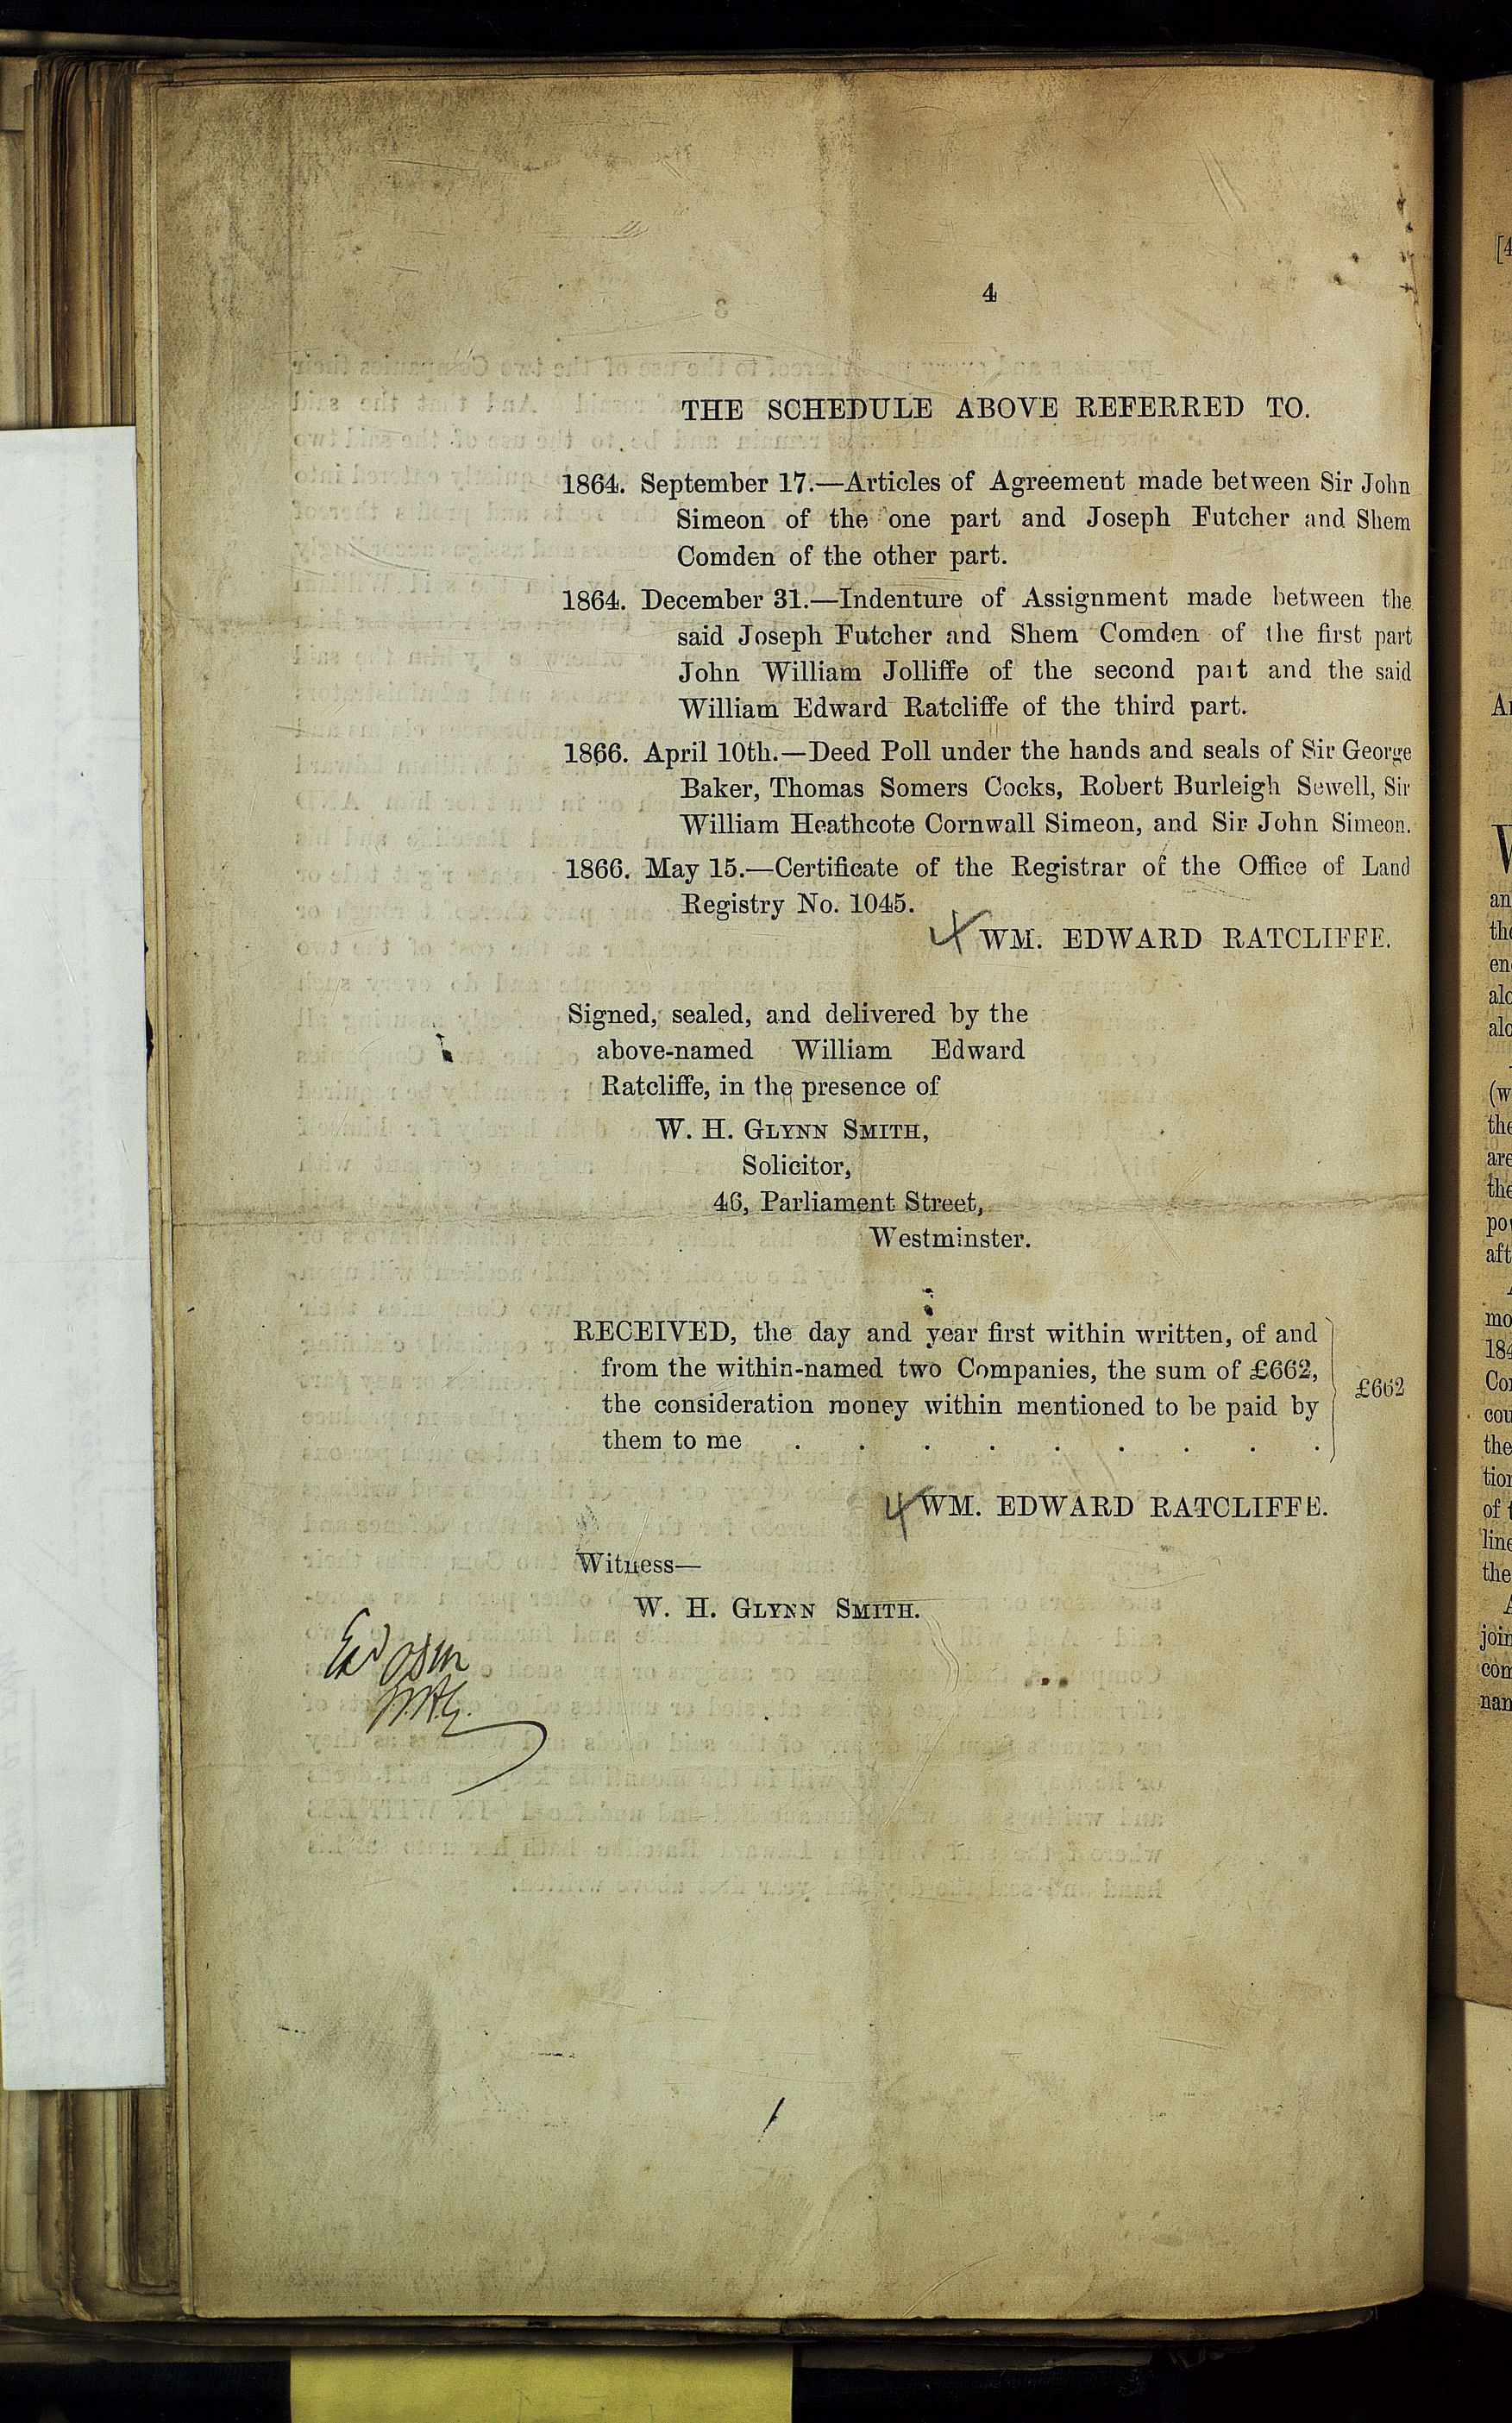 4
THE SCHEDULE ABOVE REFERRED TO.
1864. September 17.—Articles of Agreement made between Sir John
Simeon of the one part and Joseph Futcher and Shem
Comden of the other part.
1864. December 31.—Indenture of Assignment made between the
said Joseph Futcher and Shem Comden of the first part
John William Jolliffe of the second part and the said
William Edward Ratcliffe of the third part.
1866. April 10th.—Deed Poll under the hands and seals of Sir George
Baker, Thomas Somers Cocks, Robert Burleigh Sewell, Sir
William Heathcote Cornwall Simeon, and Sir John Simeon.
1866. May 15.—Certificate of the Registrar of the Office of Land
Registry No. 1045.
WM. EDWARD RATCLIFFE.
Signed, sealed, and delivered by the
above-named William Edward
Ratcliffe, in the presence of
W. H. GLYNN SMITH,
Solicitor,
46, Parliament Street,
Westminster.
RECEIVED, the day and year first within written, of and
from the within-named two Companies, the sum of £662,
the consideration money within mentioned to be paid by
them to me . . . . . . . . .
£662
WM. EDWARD RATCLIFFE.
Witness—
W. H. GLYNN SMITH.